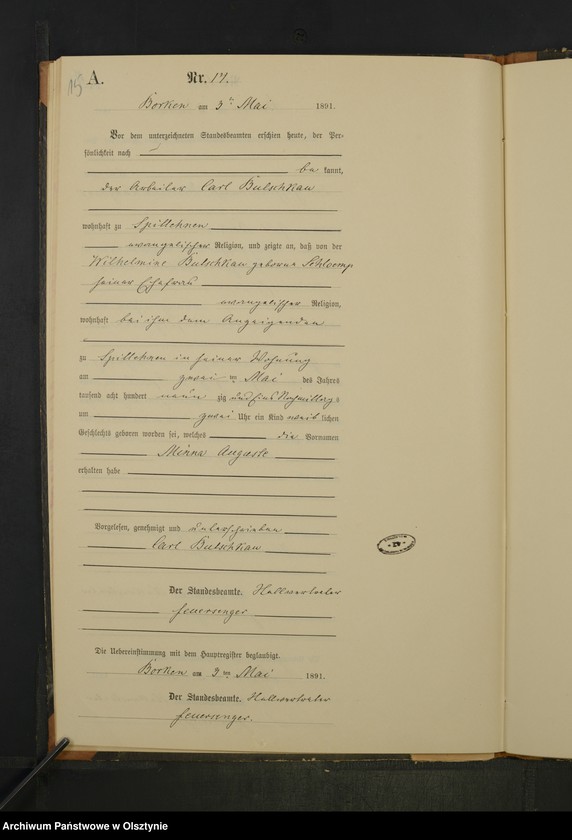 15
A. Nr. 17.
Borken am 3ten Mai 1891.
Vor dem unterzeichneten Standesbeamten erschien heute, der Per-
sönlichkeit nach
be kannt,
der Arbeiter Carl Butschkau
wohnhaft zu Spillehnen
evangelischer Religion, und zeigte an, daß von der
Wilhelmine Butschkau geborne Schloemp
seiner Ehefrau
evangelischer Religion,
wohnhaft bei ihm dem Anzeigenden
zu Spillehnen in seiner Wohnung
am zwei ten Mai des Jahres
tausend acht hundert neun zig und Eins Nachmittags
um zwei Uhr ein Kind weib lichen
Geschlechts geboren worden sei, welches die Vornamen
Minna Auguste
erhalten habe
Vorgelesen, genehmigt und unterschrieben
Carl Butschkau
Der Standesbeamte.
Feuersenger
Die Uebereinstimmung mit dem Hauptregister beglaubigt.
Borken am 3ten Mai 1891.
Der Standesbeamte.
Feuersenger.
Archiwum Państwowe w Olsztynie